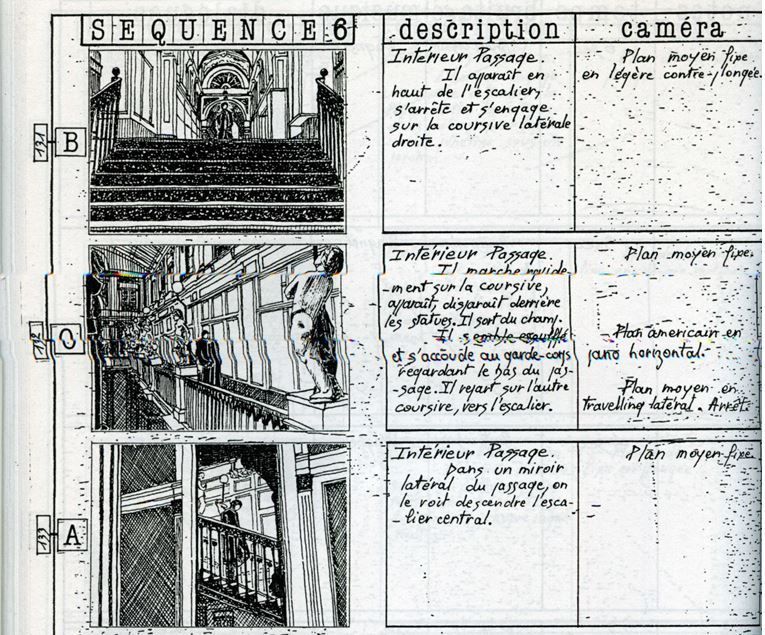 SEQUENCE 6
description
caméra
131
B
Intérieur Passage.
Il apparaît en
haut de l'escalier,
s'arrête et s'engage
sur la coursive latérale
droite.
Plan moyen fixe
en légère contre-plongée.
132
O
Intérieur Passage.
Il marche rapide-
-ment sur la coursive,
apparaît, disparaît derrière
les statues. Il sort du champ.
Il semble essoufflé
et s'accoude au garde-corps
regardant le bas du pas-
-sage. Il repart sur l'autre
coursive, vers l'escalier.
Plan moyen fixe.
Plan américain en
pano horizontal.
Plan moyen en
travelling latéral. Arrêt.
133
A
Intérieur Passage.
Dans un miroir
latéral du passage, on
le voit descendre l'esca-
-lier central.
Plan moyen fixe